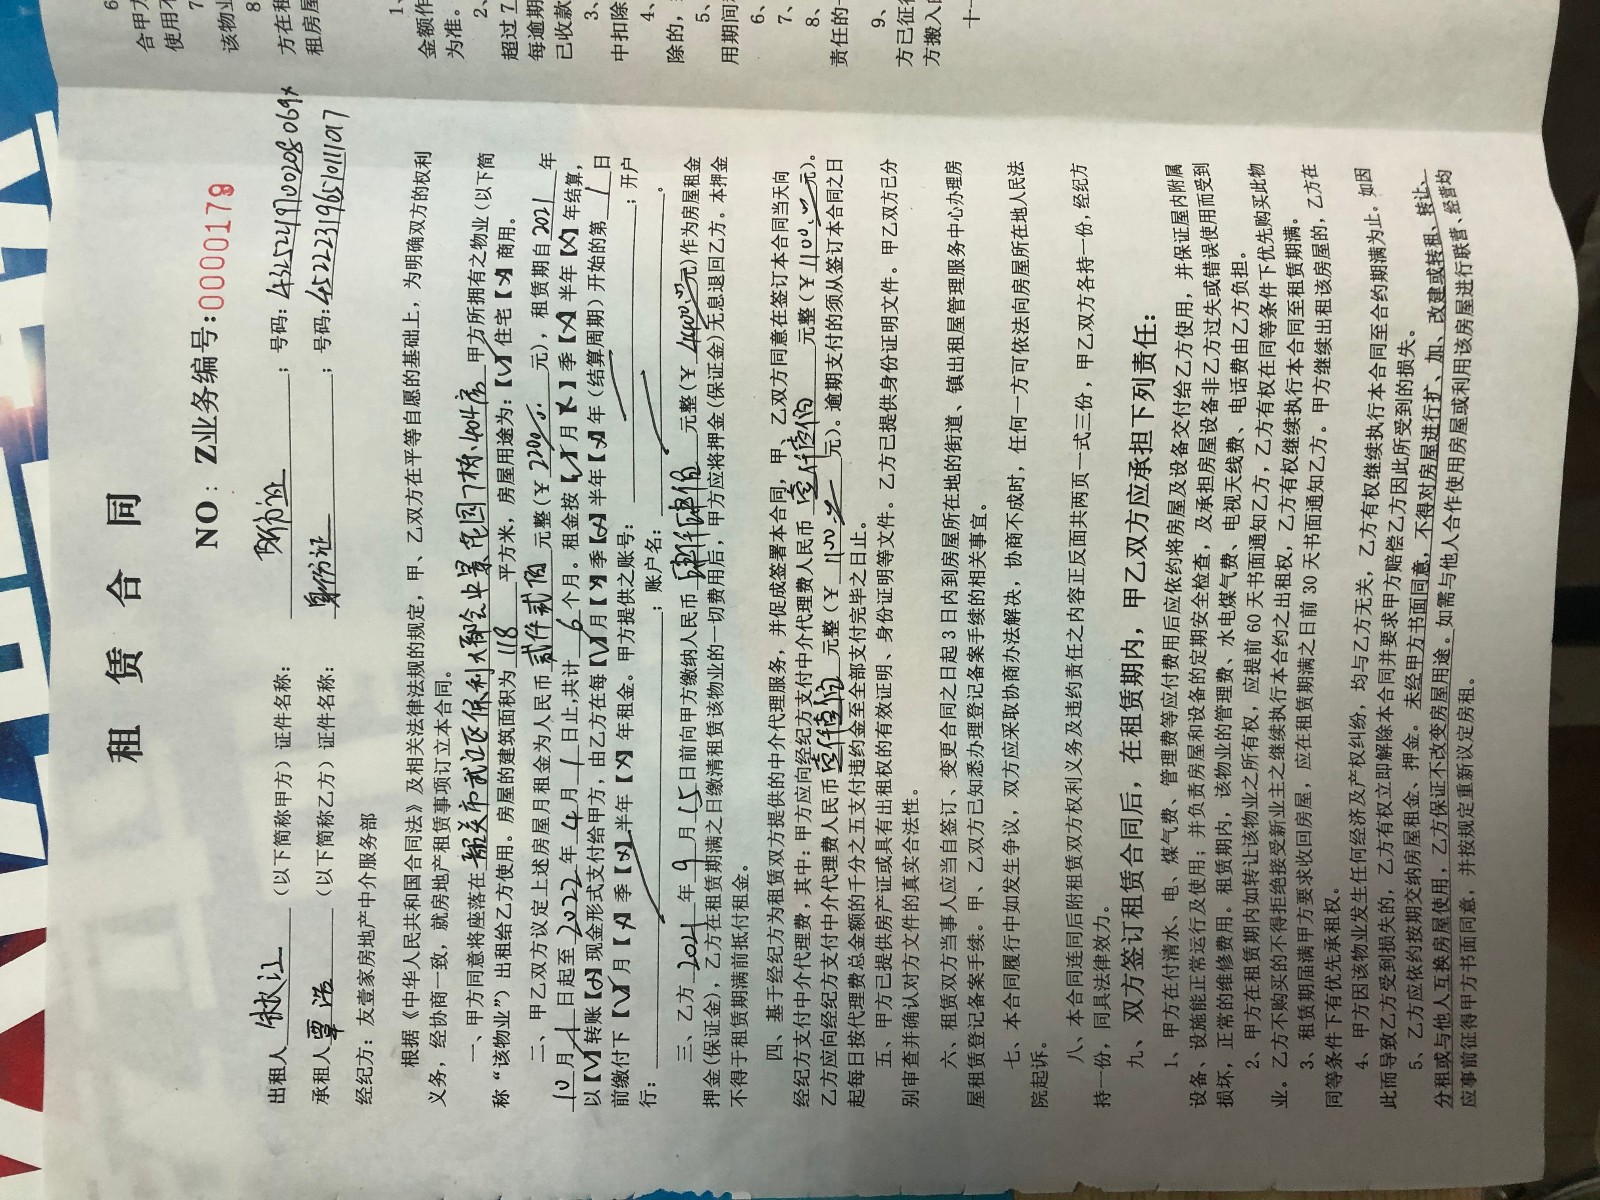 租 赁 合 同
NO：Z业务编号:0000179
出租人 林江 （以下简称甲方）证件名称： 身份证 ；号码: 43252419710028069X
承租人 覃浩 （以下简称乙方）证件名称： 身份证 ；号码:452223196510111017
经纪方：友壹家房地产中介服务部
根据《中华人民共和国合同法》及相关法律法规的规定，甲、乙双方在平等自愿的基础上，为明确双方的权利
义务，经协商一致，就房地产租赁事项订立本合同。
一、甲方同意将座落在 韶关市武江区保利大都会 景园7栋404房 甲方所拥有之物业（以下简
称“该物业”）出租给乙方使用。房屋的建筑面积为 118 平方米，房屋用途为：【√】住宅【×】商用。
二、甲乙双方议定上述房屋月租金为人民币 贰仟贰佰 元整（￥ 2200 元），租赁期自 2021 年
10 月 1 日起至 2022 年 4 月 1 日止,共计 6 个月。租金按【√】月【×】季【×】半年【×】年结算，
以【√】转账【×】现金形式支付给甲方，由乙方在每【√】月【×】季【×】半年【×】年（结算周期）开始的第 1 日
前缴付下【√】月【×】季【×】半年【×】年租金。甲方提供之账号： ；开户
行： ；账户名： 。
三、乙方 2021 年 9 月 15 日前向甲方缴纳人民币 肆仟肆佰 元整（￥ 4400.00元）作为房屋租金
押金（保证金），乙方在租赁期满之日缴清租赁该物业的一切费用后，甲方应将押金（保证金）无息退回乙方。本押金
不得于租赁期满前抵付租金。
四、基于经纪方为租赁双方提供的中介代理服务，并促成签署本合同，甲、乙双方同意在签订本合同当天向
经纪方支付中介代理费，其中：甲方应向经纪方支付中介代理费人民币 壹仟壹佰 元整（￥ 1100.00元）。
乙方应向经纪方支付中介代理费人民币 壹仟壹佰 元整（￥ 1100 元）。逾期支付的须从签订本合同之日
起每日按代理费总金额的千分之五支付违约金至全部支付完毕之日止。
五、甲方已提供房产证或具有出租权的有效证明、身份证明等文件。乙方已提供身份证明文件。甲乙双方已分
别审查并确认对方文件的真实合法性。
六、租赁双方当事人应当自签订、变更合同之日起 3 日内到房屋所在地的街道、镇出租屋管理服务中心办理房
屋租赁登记备案手续。甲、乙双方已知悉办理登记备案手续的相关事宜。
七、本合同履行中如发生争议，双方应采取协商办法解决，协商不成时，任何一方可依法向房屋所在地人民法
院起诉。
八、本合同连同后附租赁双方权利义务及违约责任之内容正反面共两页一式三份，甲乙双方各持一份，经纪方
持一份，同具法律效力。
九、双方签订租赁合同后，在租赁期内，甲乙双方应承担下列责任：
1、甲方在付清水、电、煤气费、管理费等应付费用后应依约将房屋及设备交付给乙方使用，并保证屋内附属
设备、设施能正常运行及使用；并负责房屋和设备的定期安全检查，及承担房屋设备非乙方过失或错误使用而受到
损坏，正常的维修费用。租赁期内，该物业的管理费、水电煤气费、电视天线费、电话费由乙方负担。
2、甲方在租赁期内如转让该物业之所有权，应提前 60 天书面通知乙方，乙方有权在同等条件下优先购买此物
业。乙方不购买的不得拒绝接受新业主之继续执行本合约之出租权，乙方有权继续执行本合同至租赁期满。
3、租赁期届满甲方要求收回房屋，应在租赁期满之日前 30 天书面通知乙方。甲方继续出租该房屋的，乙方在
同等条件下有优先承租权。
4、甲方因该物业发生任何经济及产权纠纷，均与乙方无关，乙方有权继续执行本合同至合约期满为止。如因
此而导致乙方受到损失的，乙方有权立即解除本合同并要求甲方赔偿乙方因此所受到的损失。
5、乙方应依约按期交纳房屋租金、押金。未经甲方书面同意，不得对房屋进行扩、加、改建或转租、转让、
分租或与他人互换房屋使用，乙方保证不改变房屋用途。如需与他人合作使用房屋或利用该房屋进行联营、经营均
应事前征得甲方书面同意，并按规定重新议定房租。
6
合甲方
使用不
7
该物业
8
方在租
租房屋
1、
金额作
为准。
2、
超过 7
每逾期
已收款
3、
中扣除
4、
除的，
5、
用期间
6、
7、
8、
责任的
9、
方已征
方搬入
十